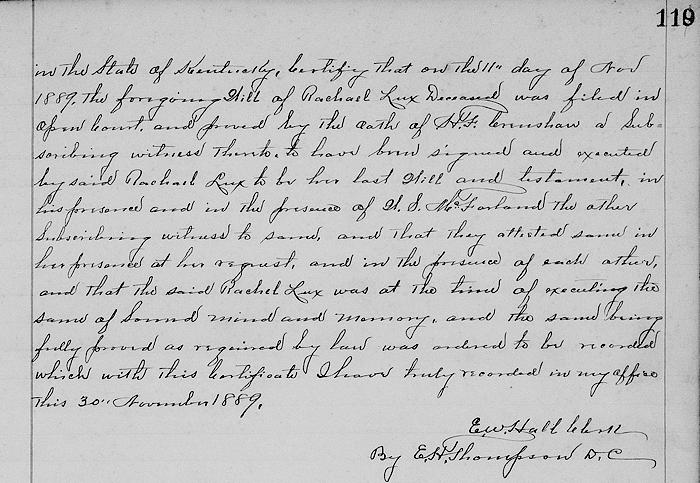 119
in the State of Kentucky, Certify that on the 11" day of Nov
1889, the foregoing Will of Rachael Lux Deceased was filed in
Open Court, and proved by the Oath of H. F. Crenshaw a Sub=
scribing witness thereto, to have been signed and executed
by said Rachael Lux to be her last Will and testament, in
his presence and in the presence of W. S. McFarland the other
Subscribing witness to same, and that they attested same in
her presence at her request, and in the presence of each other,
and that the said Rachel Lux was at the time of executing the
same of Sound mind and memory, and the same being
fully proved as required by law was ordered to be recorded
which with this Certificate I have truly recorded in my office
This 30" November 1889.
E.W. Hall Clerk
By E.H. Thompson D.C